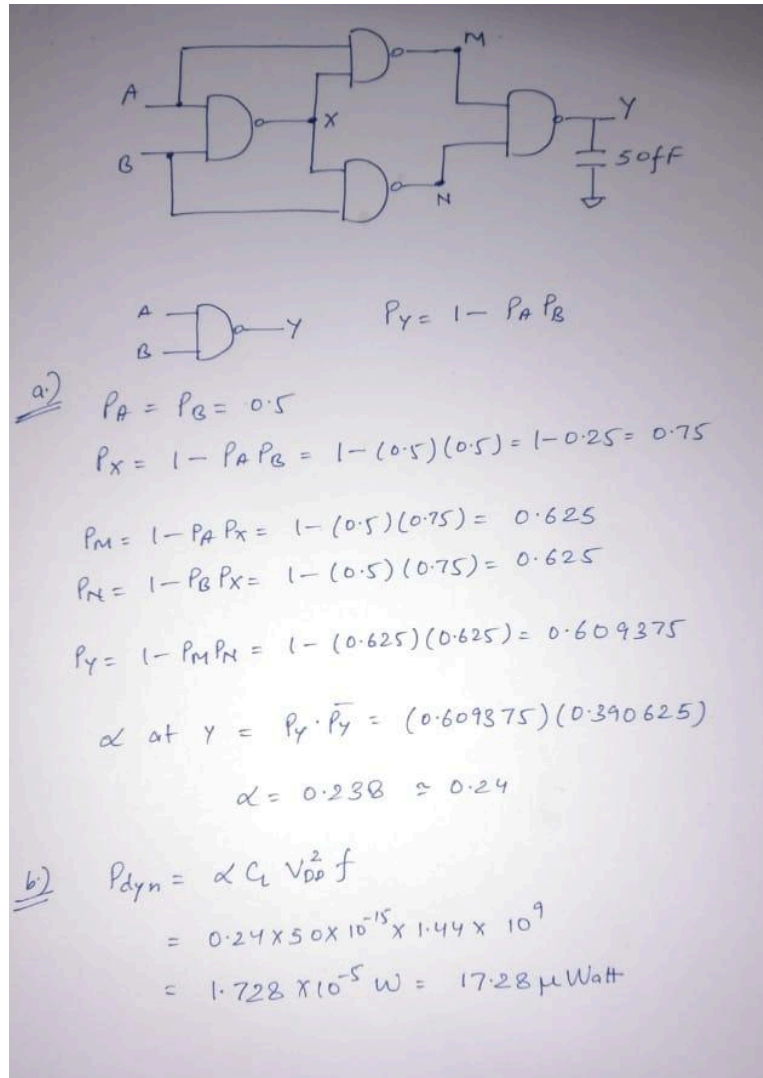 M
A
X
Y
B
50fF
N
A
Y
B
P_Y = 1 - P_A P_B
a.)
P_A = P_B = 0.5
P_X = 1 - P_A P_B = 1 - (0.5)(0.5) = 1 - 0.25 = 0.75
P_M = 1 - P_A P_X = 1 - (0.5)(0.75) = 0.625
P_N = 1 - P_B P_X = 1 - (0.5)(0.75) = 0.625
P_Y = 1 - P_M P_N = 1 - (0.625)(0.625) = 0.609375
α at Y = P_Y · P̅_Y = (0.609375)(0.390625)
α = 0.238 ≃ 0.24
b.) P_dyn = α C_L V_DD² f
= 0.24 × 50 × 10⁻¹⁵ × 1.44 × 10⁹
= 1.728 × 10⁻⁵ W = 17.28 μ Watt